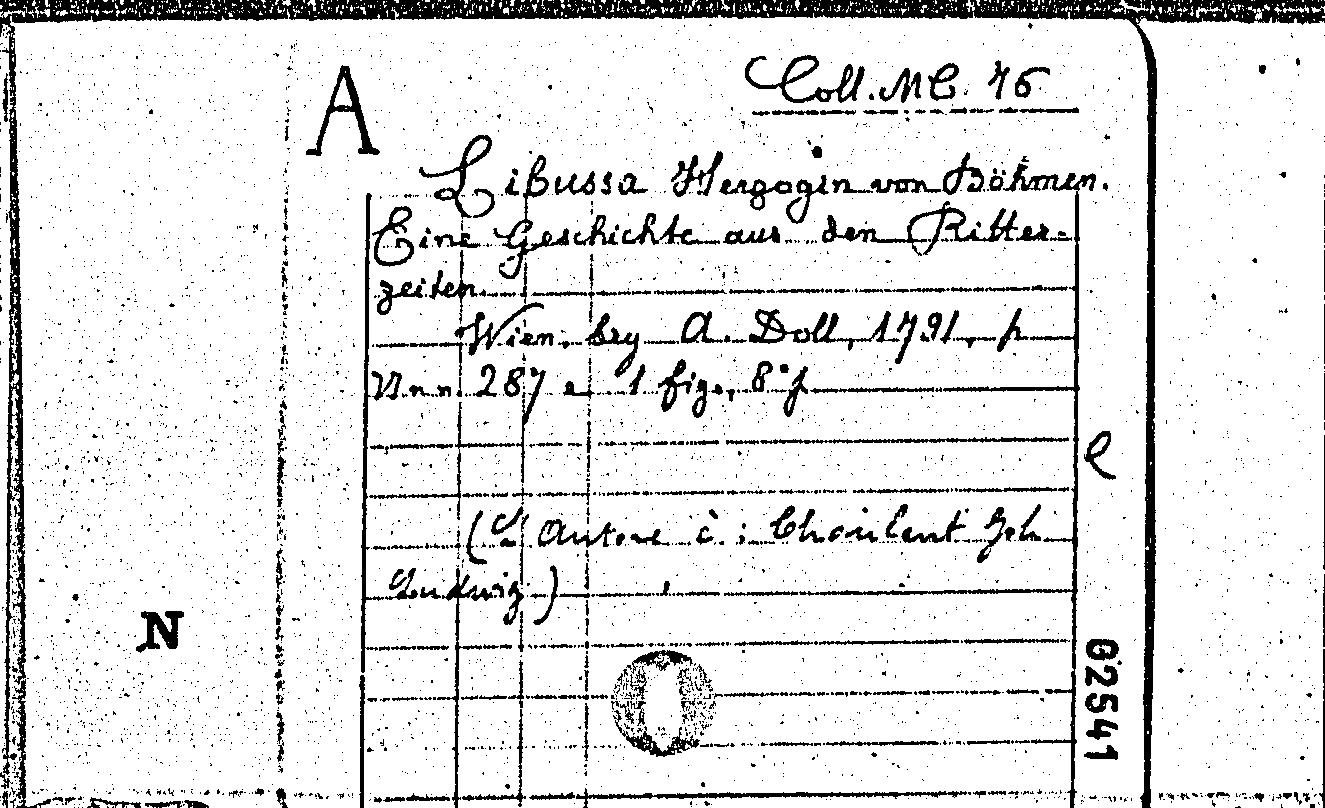 A
Coll. MC. 76
Libussa Herzogin von Böhmen.
Eine Geschichte aus den Ritter-
zeiten.
Wien, bey A. Doll, 1791, p
nn. 287 e 1 fig., 8° p
e
(L'Autore è: Choulent Joh
Ludwig)
N
02541